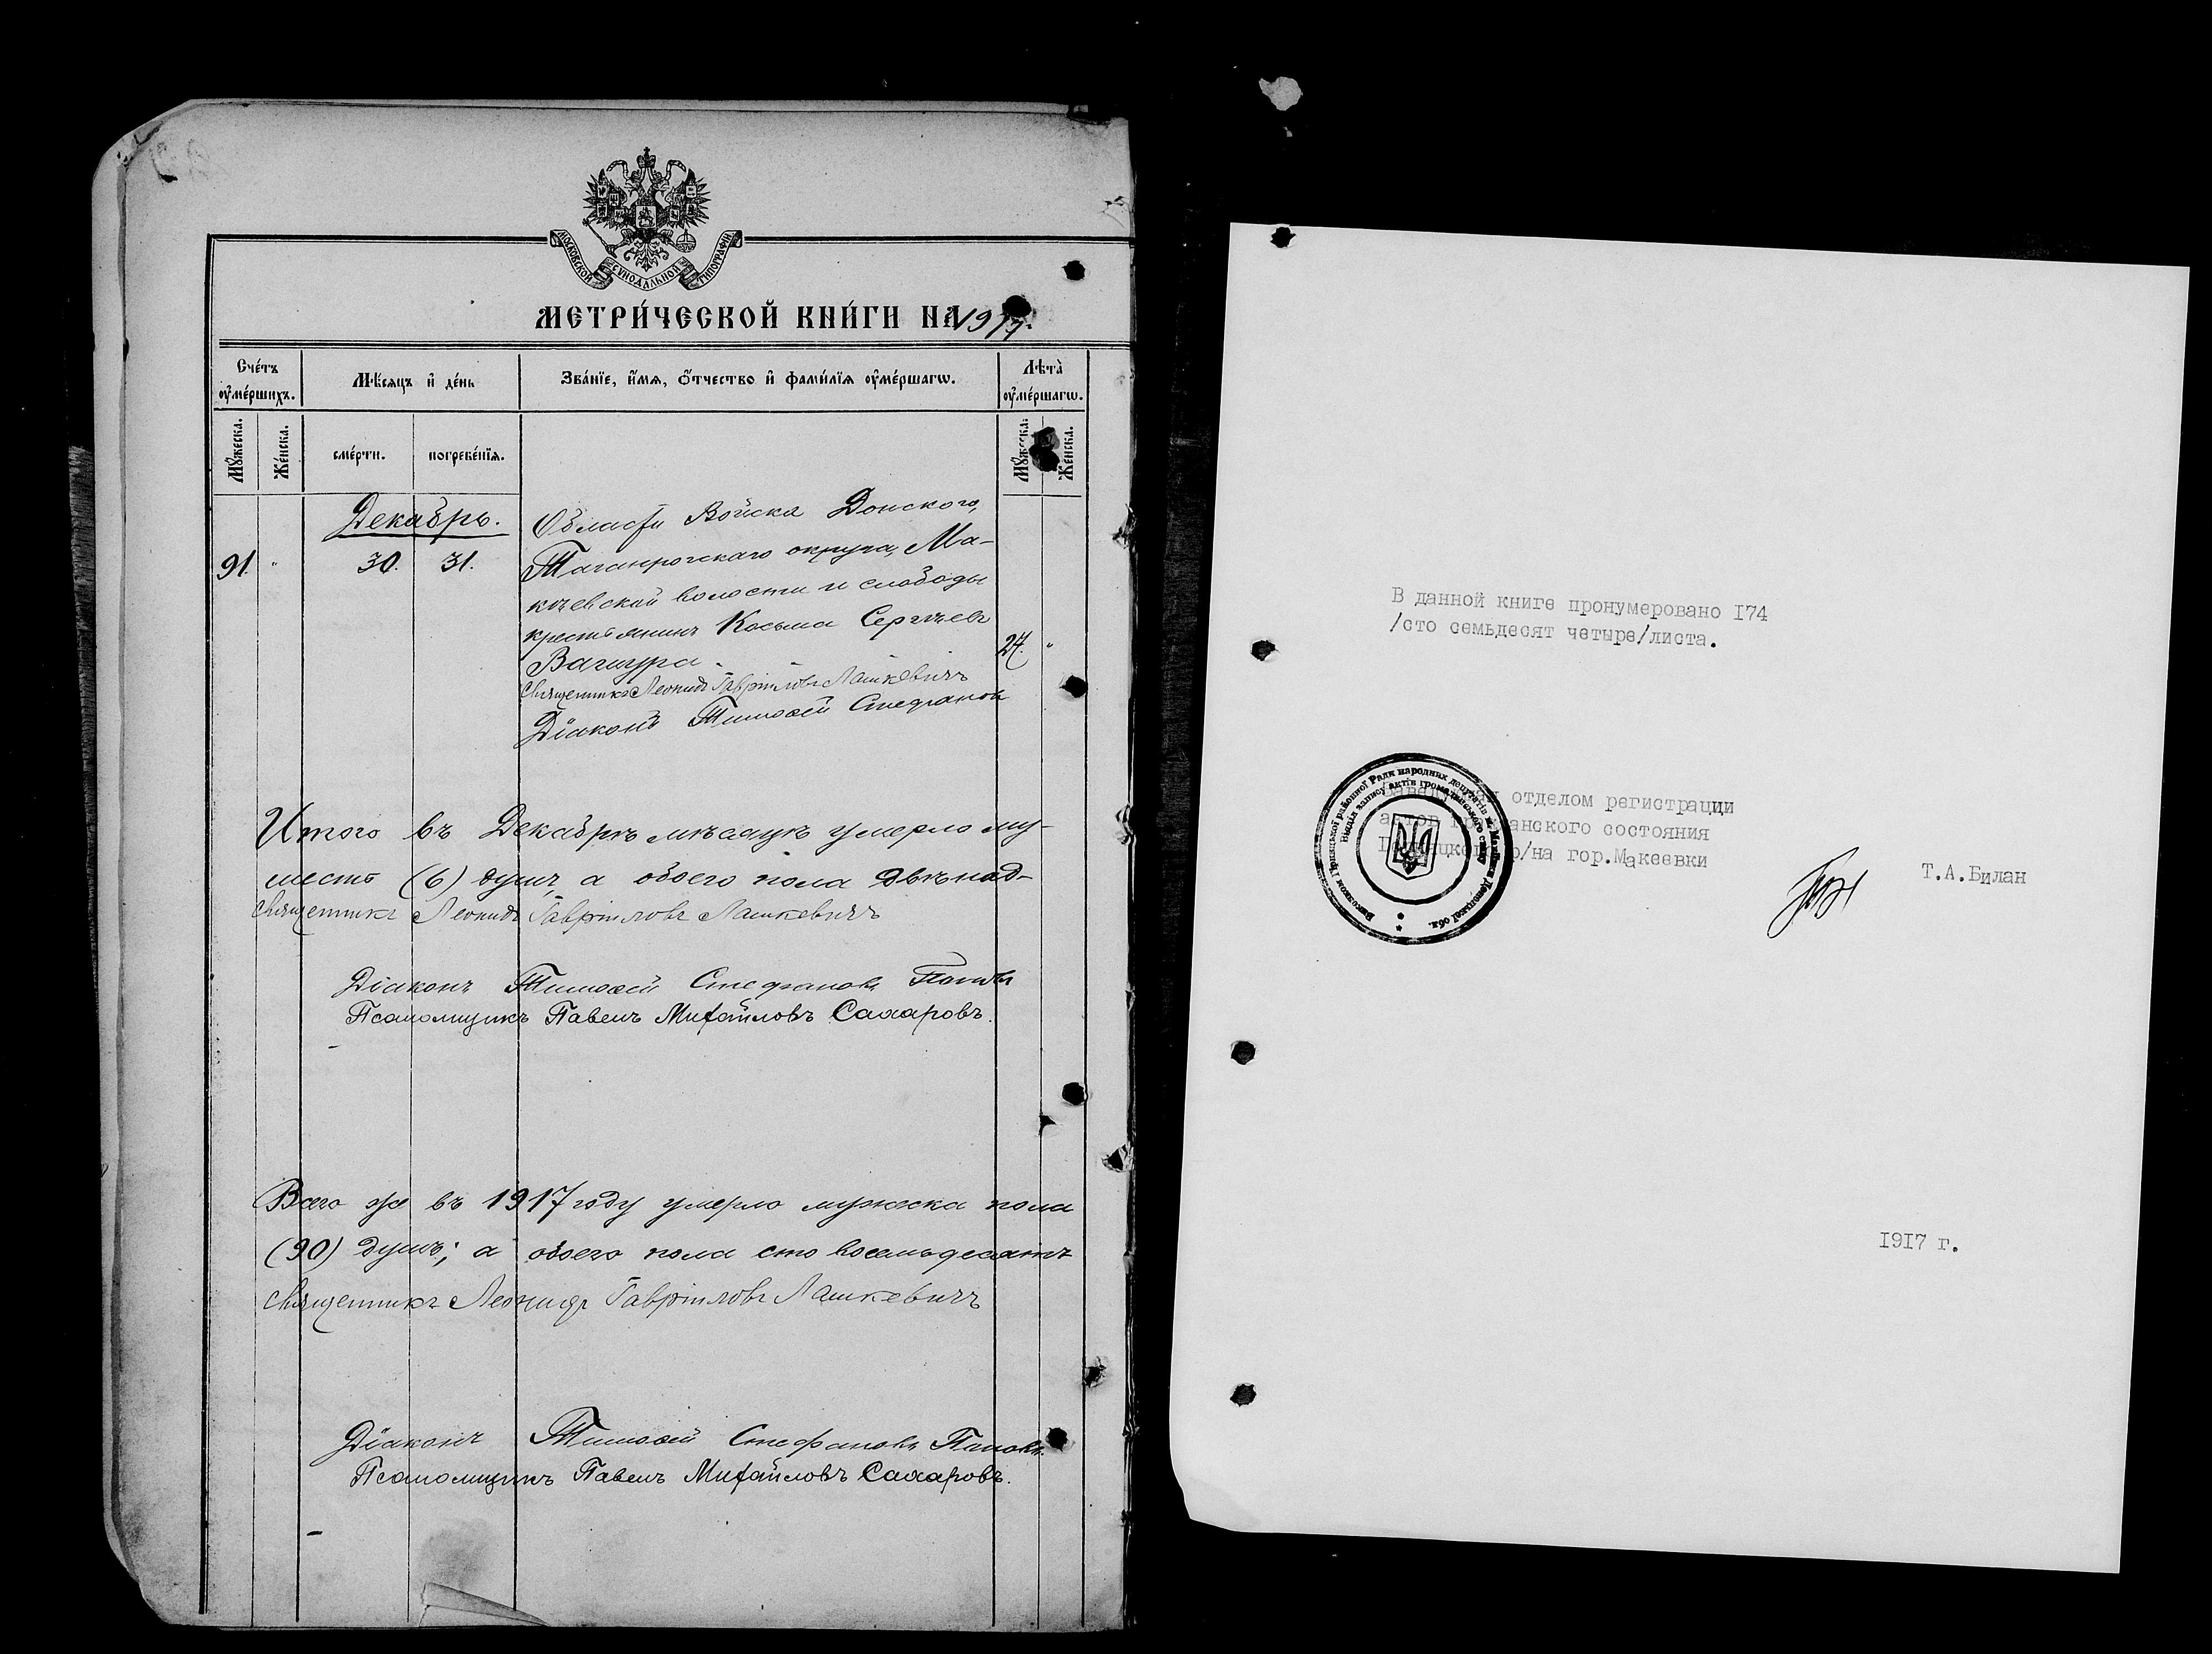 МОСКОВСКОЙ СѴНОДАЛЬНОЙ ТИПОГРАФІИ
МЕТРИ́ЧЕСКОЙ КНИ́ГИ НА 1917 г.
Сче́тъ ᲂу҆ме́ршихъ.
Мѣ́сяцъ и҆ де́нь
Зва́нїе, и҆́мя, ѻ҆́тчество и҆ фами́лїя ᲂу҆ме́ршагѡ.
Лѣта̀ ᲂу҆ме́ршагѡ.
Мꙋ́жеска.
Же́нска.
сме́рти.
погребе́нїя.
Мꙋ́жеска.
Же́нска.
Декабрь.
91. " 30. 31.
Области Войска Донского,
Таганрогскаго округа, Ма-
кѣевской волости и слободы
крестьянинъ Косьма Сергѣевъ
27. "
Священникъ Леонидъ Гавріиловъ Лашкевичъ
Діаконъ Тимоѳей Стефановъ
Итого въ Декабрѣ мѣсяцѣ умерло му-
шесть (6) душъ, а обоего пола двѣнад-
Священникъ Леонидъ Гавріиловъ Лашкевичъ
Діаконъ Тимоѳей Стефановъ Поповъ
Псаломщикъ Павелъ Михайловъ Сахаровъ.
Всего же въ 1917 году умерло мужска пола
(90) душъ; а обоего пола сто восемьдесятъ
Священникъ Леонидъ Гавріиловъ Лашкевичъ
Діаконъ Тимоѳей Стефановъ Поповъ.
Псаломщикъ Павелъ Михайловъ Сахаровъ.
В данной книге пронумеровано 174
/сто семьдесят четыре/листа.
отделом регистрации
актов гражданского состояния
р/на гор.Макеевки
Т.А.Билан
Відділ запису актів громадянського стану
районної Ради народних депутатів м. Макіївки Донецької обл.
1917 г.